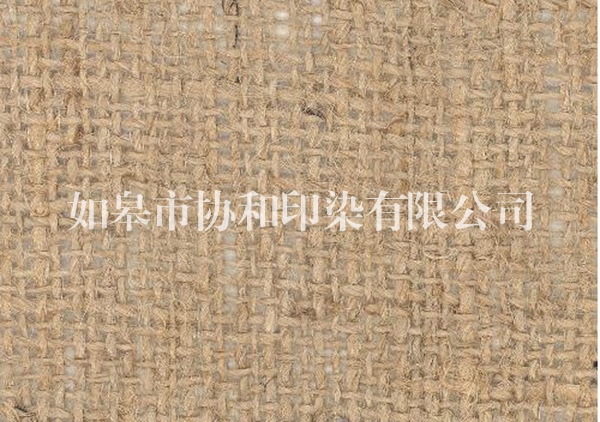 如皋市协和印染有限公司